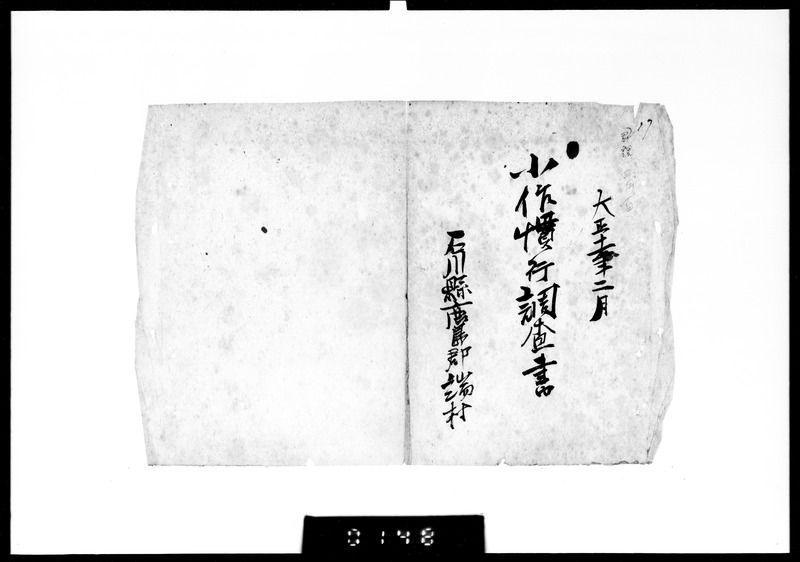 大正十一年二月
小作慣行調査書
石川縣鹿島郡端村
0148